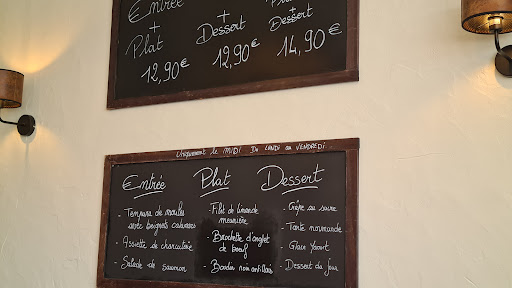 Entrée
+
Plat
12,90€
+
Dessert
12,90€
Plat
+
Dessert
14,90€
Uniquement le MIDI Du LUNDI au VENDREDI
Entrée
- Tempura de moules
avec beignets calamars
- Assiette de charcuterie
- Salade de saumon
Plat
- Filet de limande
meunière
- Brochette d'onglet
de boeuf
- Boudin noir antillais
Dessert
- Crêpe au sucre
- Tarte normande
- Glace Yaourt
- Dessert du jour